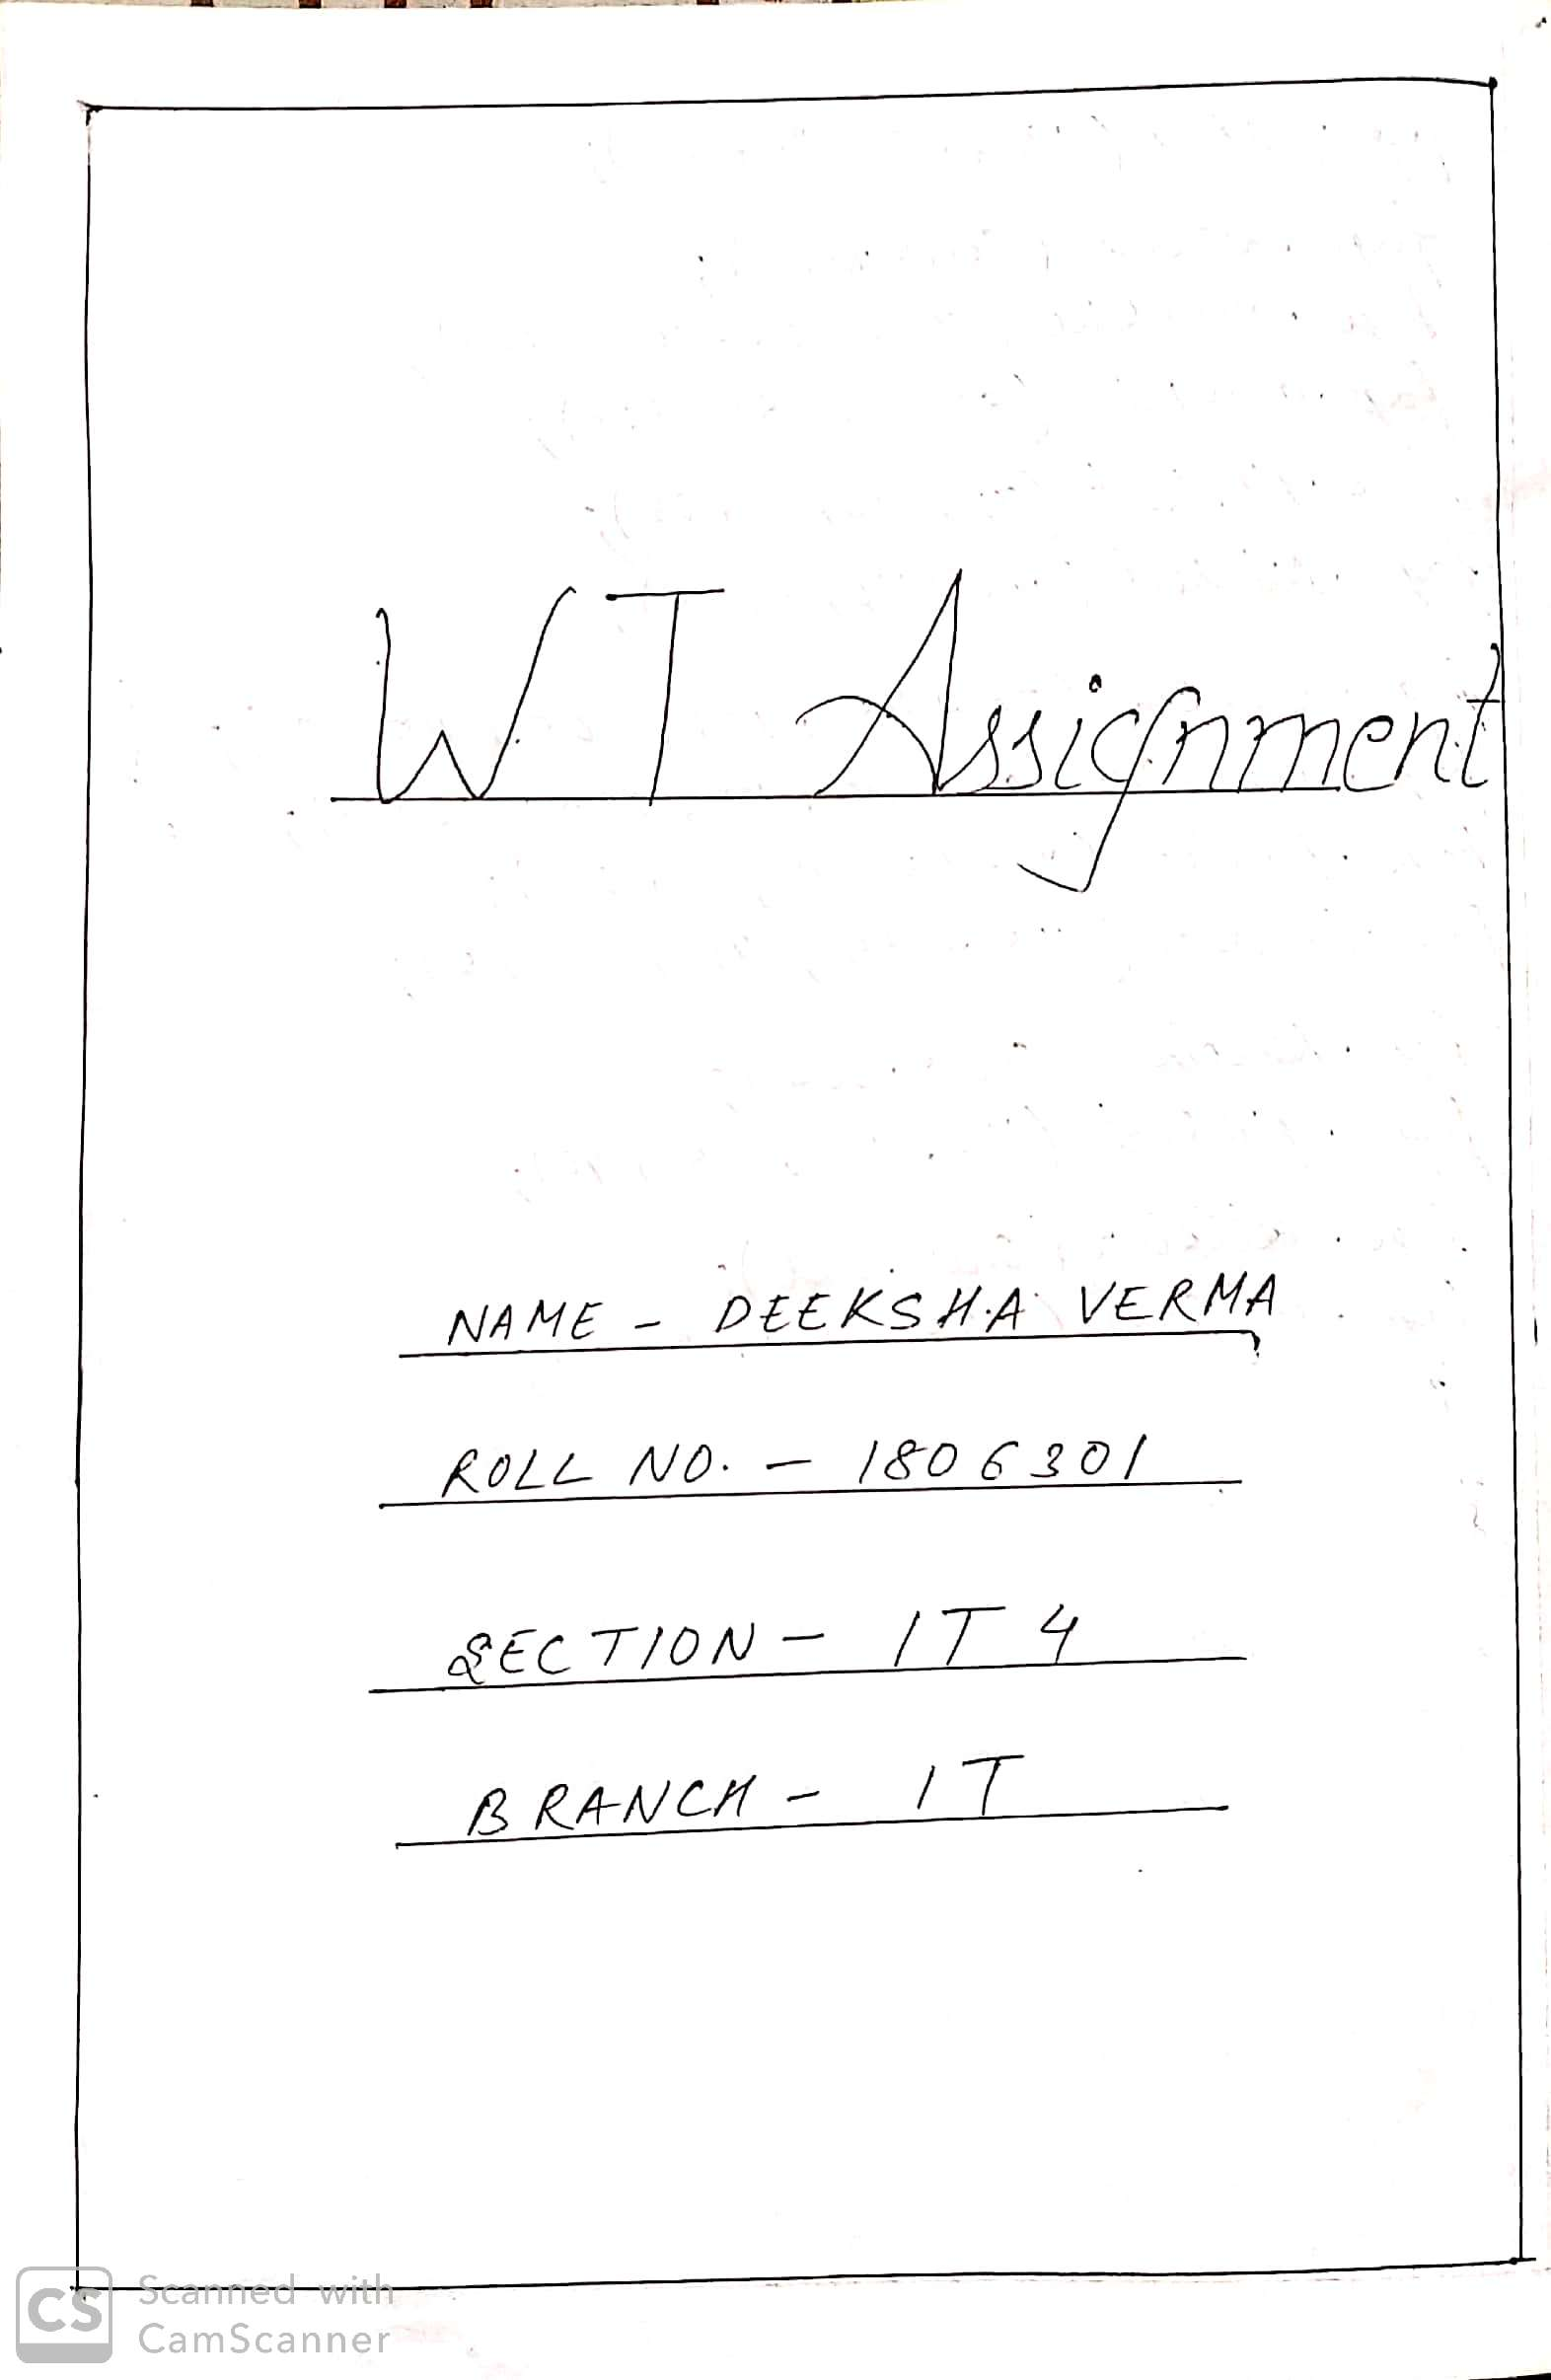 WT Assignment
NAME - DEEKSHA VERMA
ROLL NO. - 1806301
SECTION - IT 4
BRANCH - IT
CS Scanned with
CamScanner